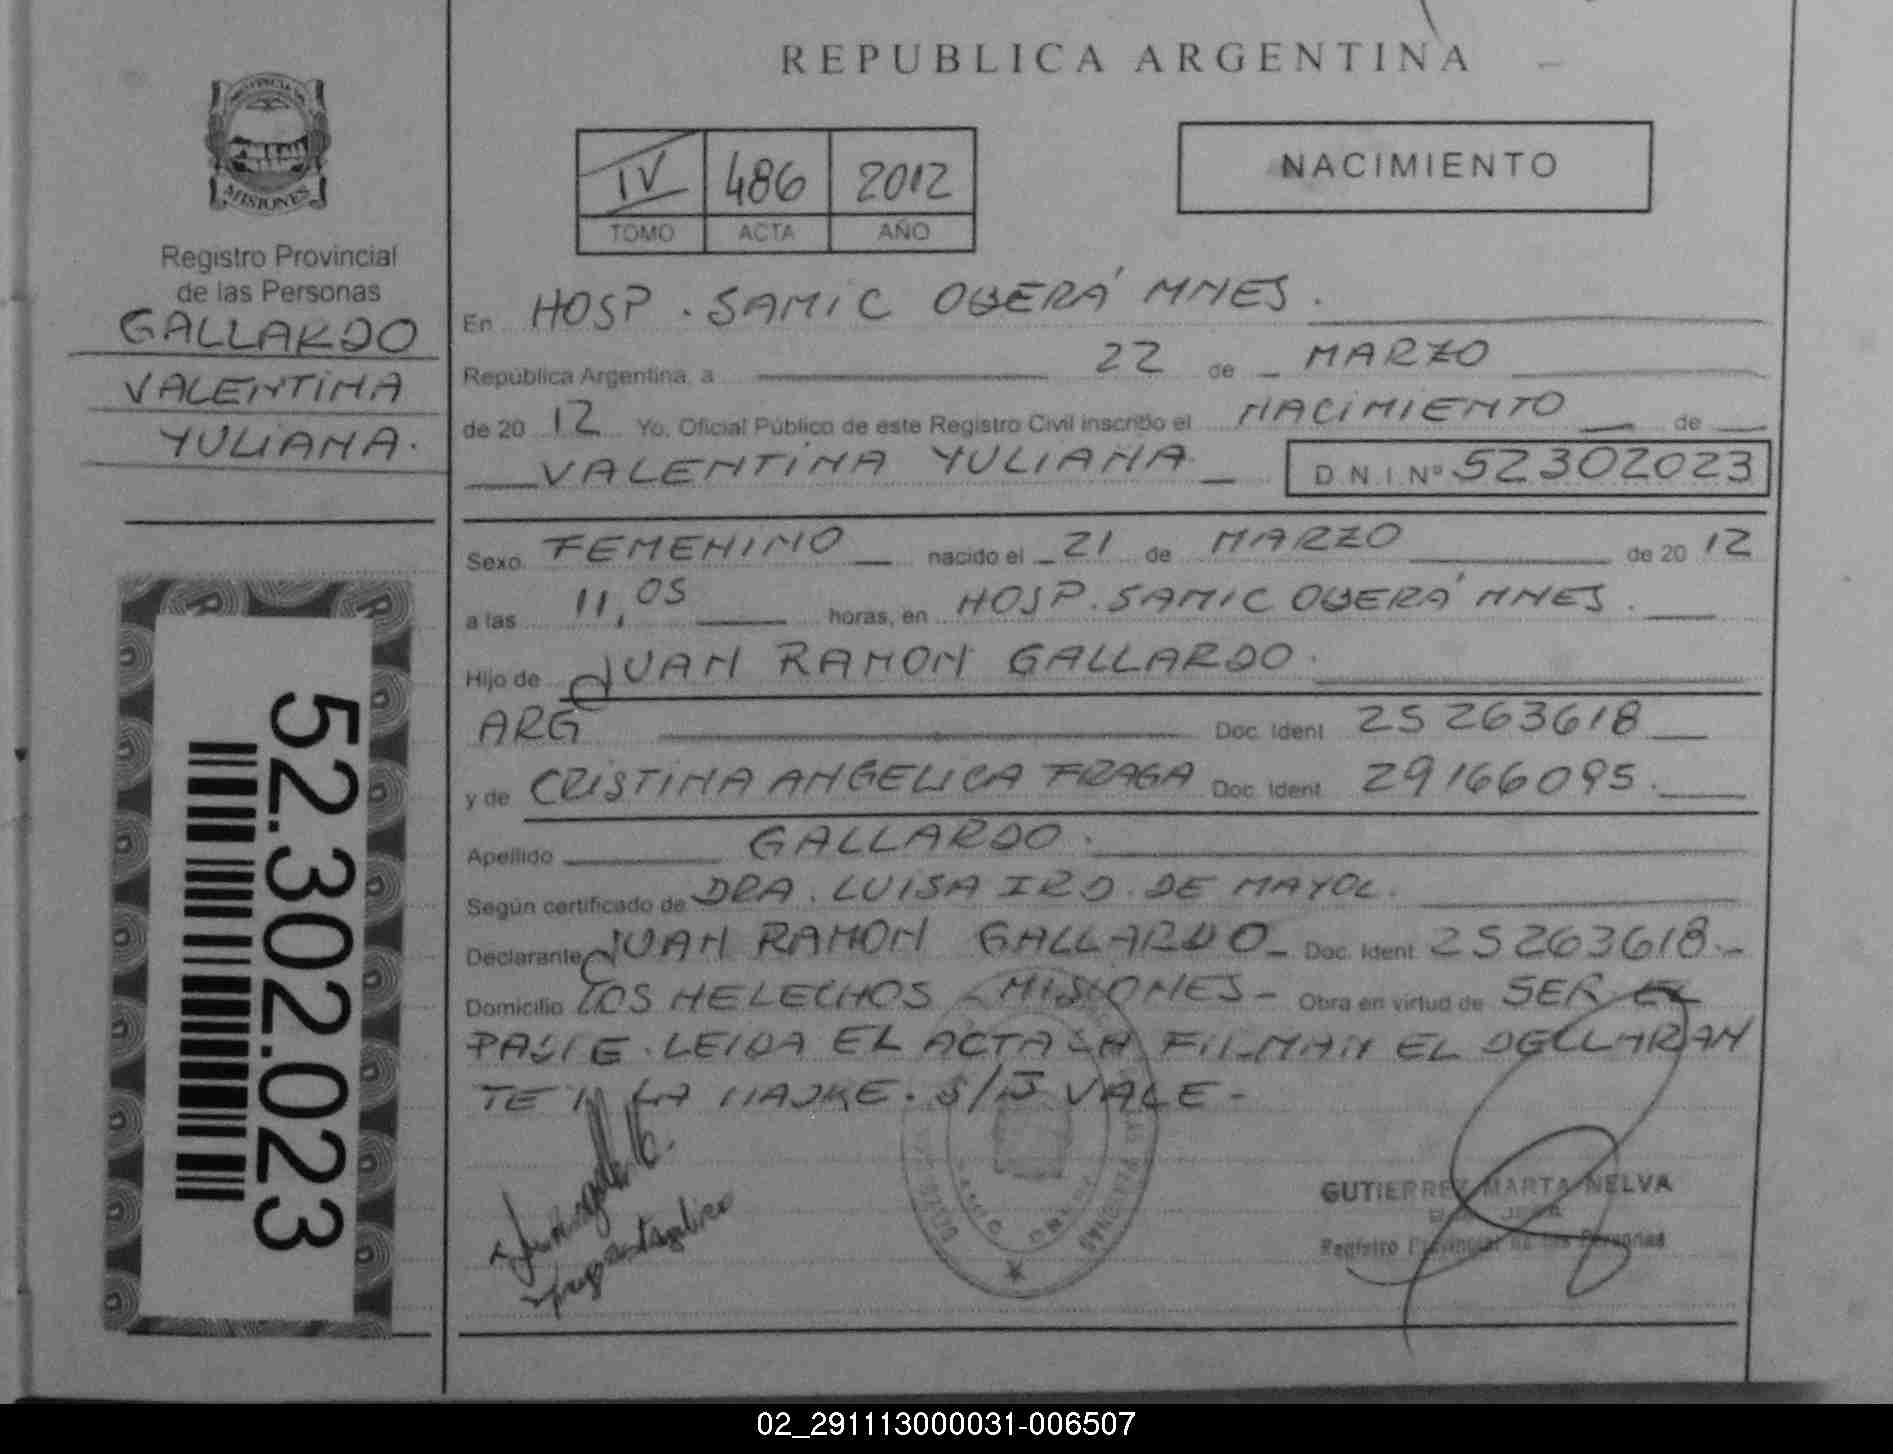 REPUBLICA ARGENTINA
PROVINCIA DE
MISIONES
Registro Provincial
de las Personas
GALLARDO
VALENTINA
YULIANA.
52.302.023
IV 486 2012
TOMO ACTA AÑO
NACIMIENTO
En HOSP. SAMIC OBERÁ MNES.
República Argentina, a 22 de MARZO
de 20 12 Yo, Oficial Público de este Registro Civil inscribo el NACIMIENTO de
VALENTINA YULIANA D.N.I. Nº 52302023
Sexo FEMENINO nacido el 21 de MARZO de 20 12
a las 11,05 horas, en HOSP. SAMIC OBERÁ MNES.
Hijo de JUAN RAMON GALLARDO.
ARG Doc. Ident 25263618
y de CRISTINA ANGELICA FRAGA Doc. Ident 29166095.
Apellido GALLARDO.
Según certificado de DRA. LUISA IRD. DE MAYOL.
Declarante JUAN RAMON GALLARDO Doc. Ident 25263618.-
Domicilio LOS HELECHOS - MISIONES - Obra en virtud de SER EL
PADRE. LEIDA EL ACTA LA FIRMAN EL DECLARAN
TE Y LA MADRE. S/B VALE-
GUTIERREZ MARTA NELVA
Registro Provincial de las Personas
02_291113000031-006507